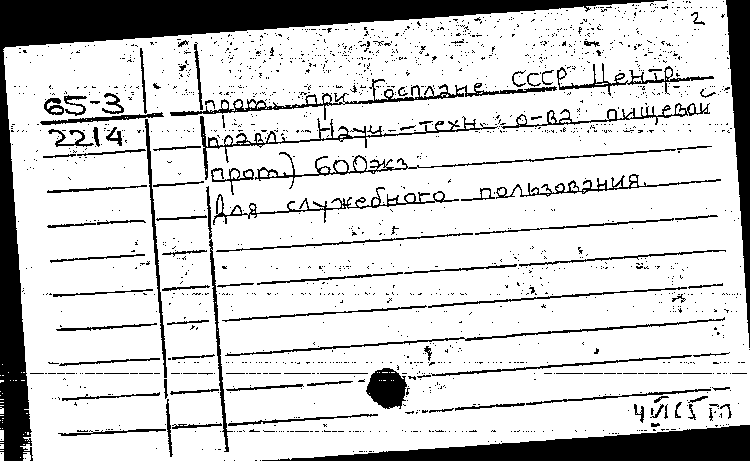 2
65-3
2214
пром. при Госплане СССР. Центр.
правл. Науч.-техн. о-ва пищевой
пром.) 600экз.
Для служебного пользования.